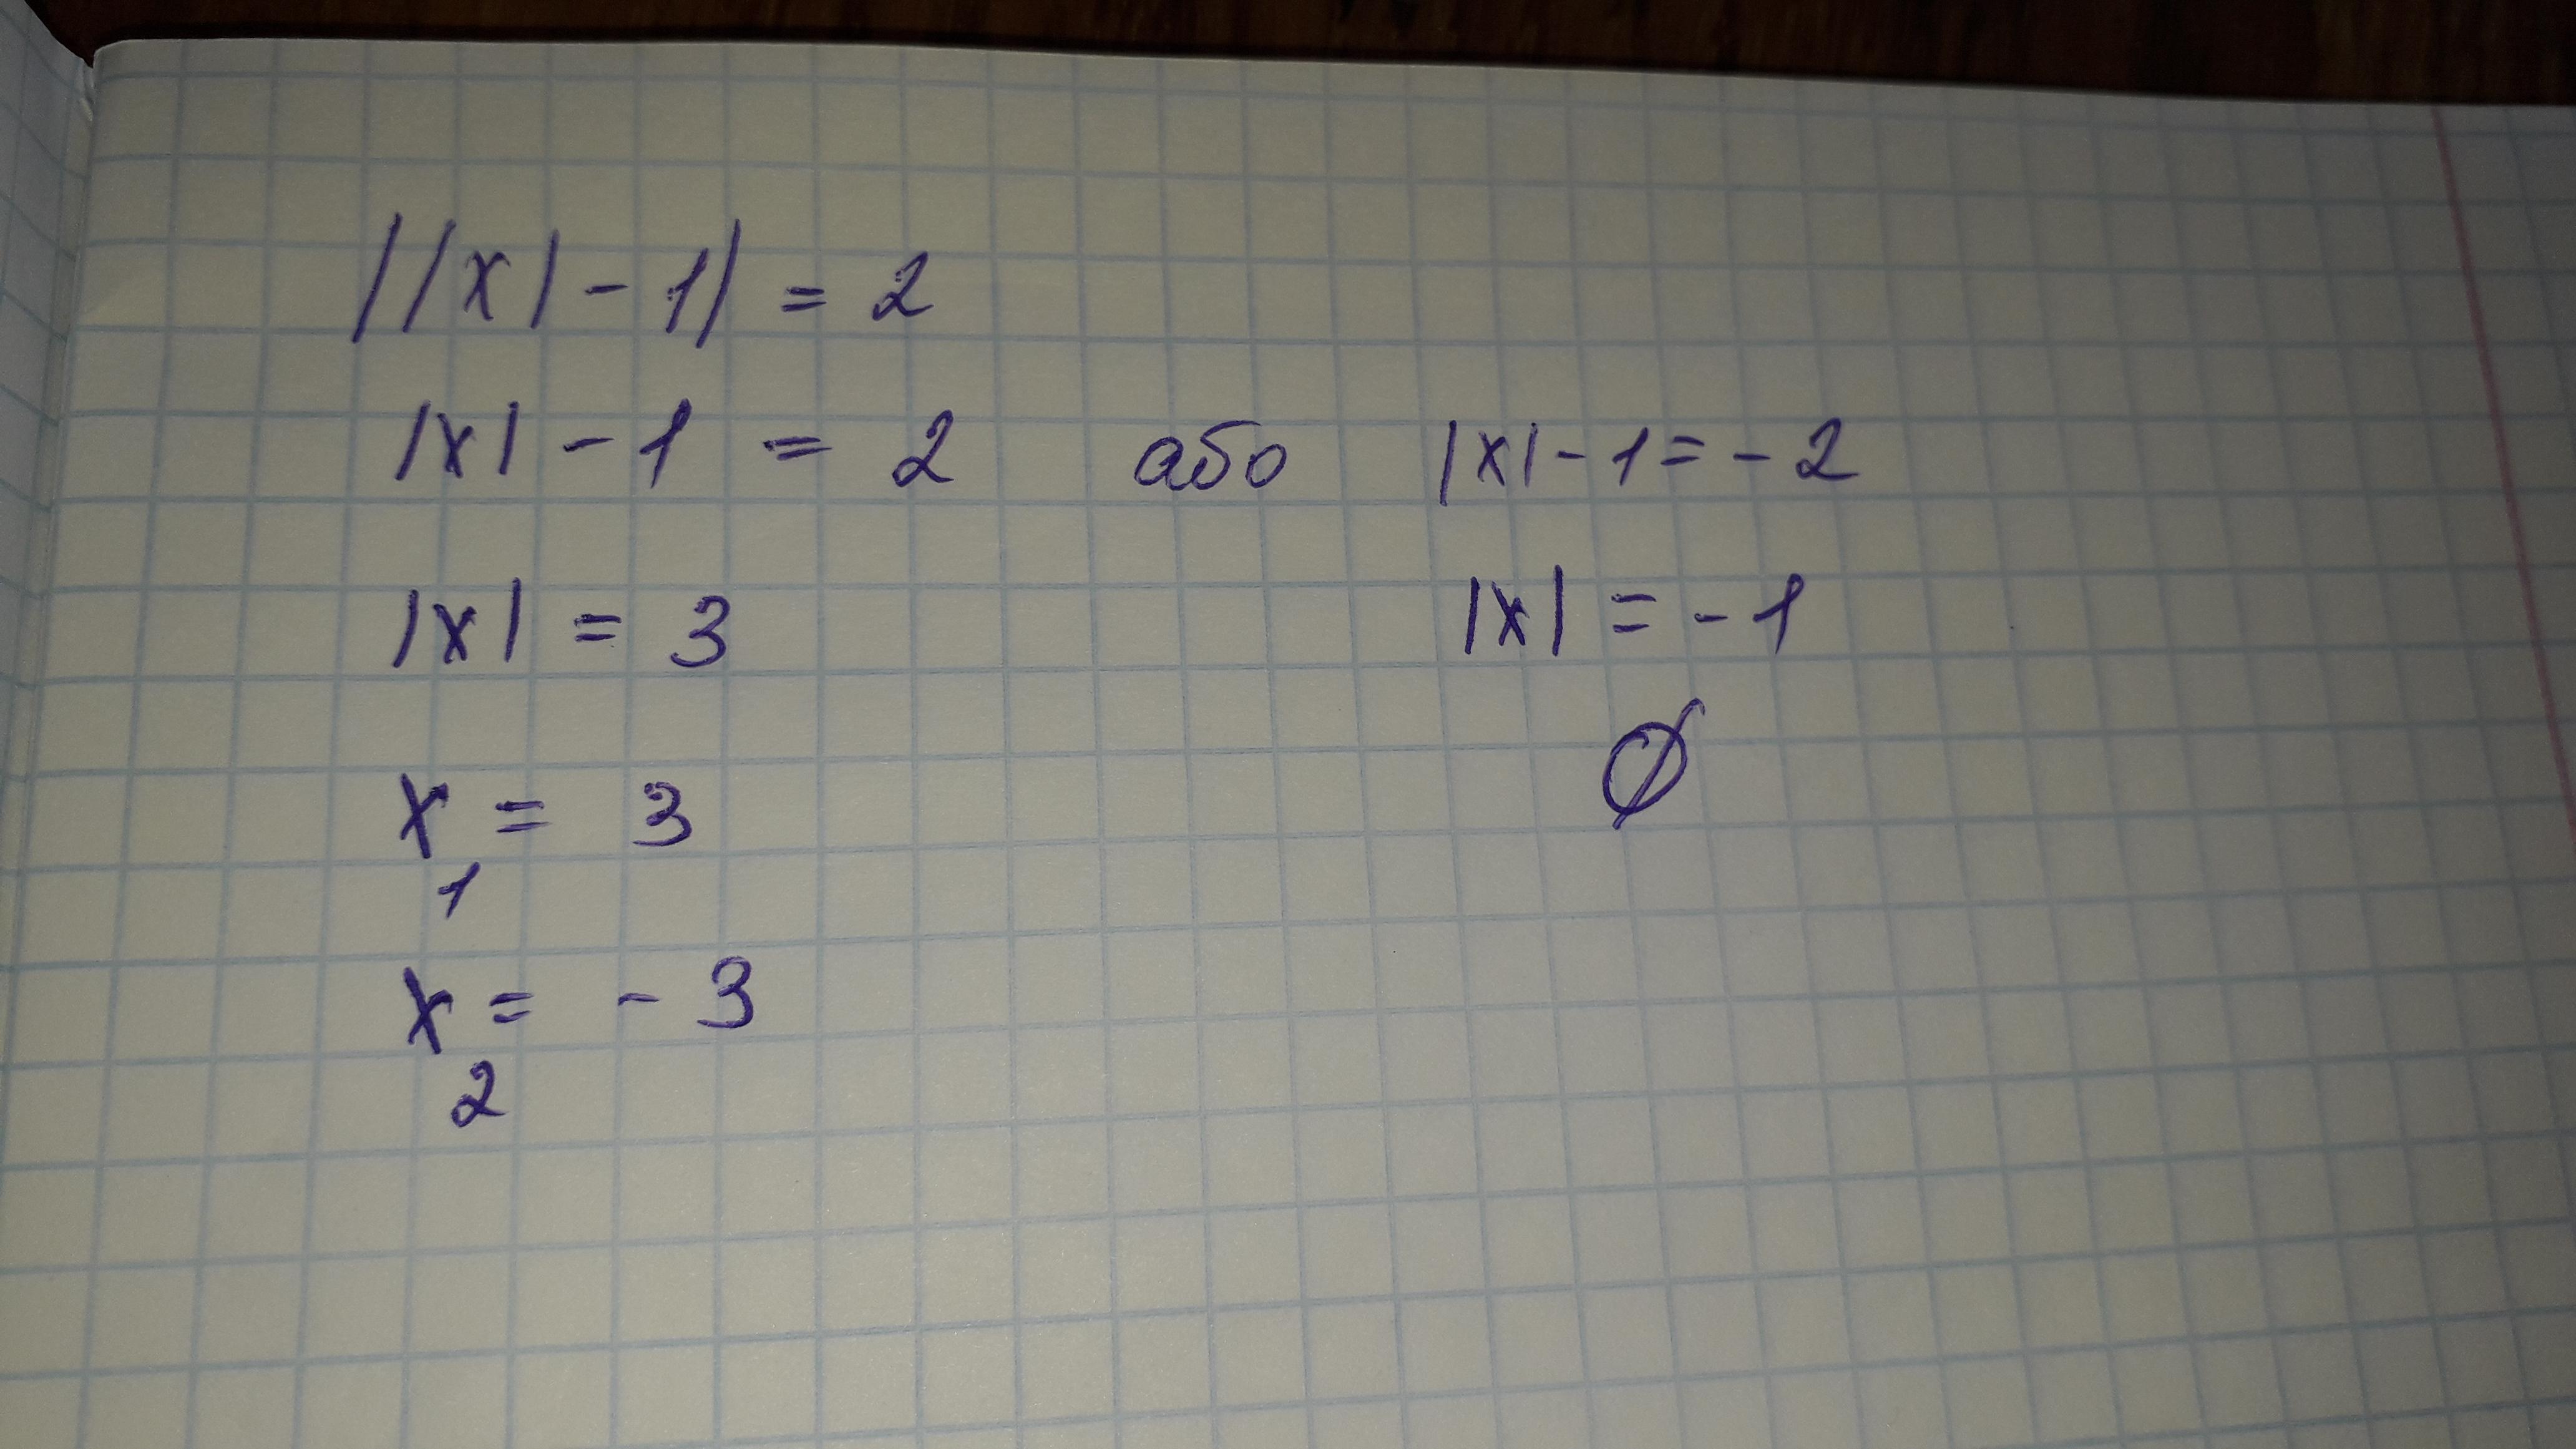 ||x| - 1| = 2
|x| - 1 = 2 або |x| - 1 = - 2
|x| = 3 |x| = - 1
x₁ = 3 ∅
x₂ = - 3